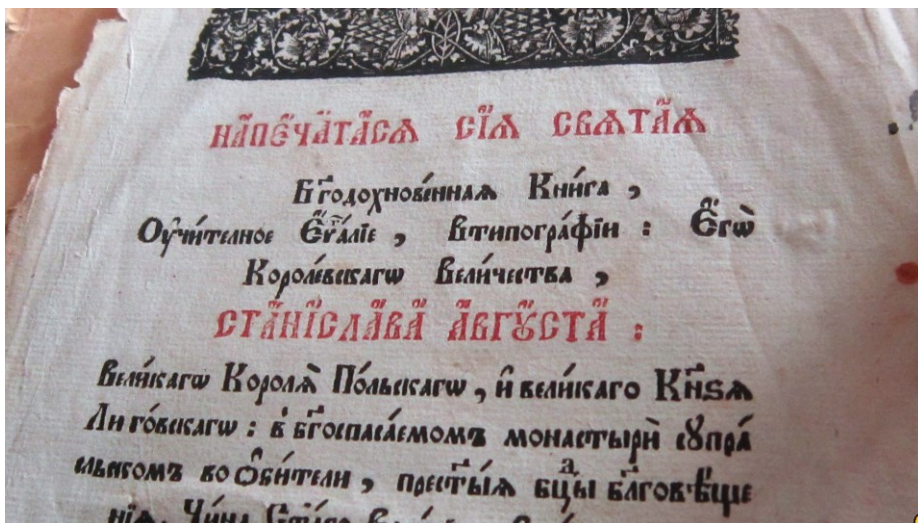 НАПЕЧАТАСѦ СІѦ СВѦТАѦ
Бг҃одохнове́ннаѧ Кни́га ,
Оу҆чи́телное Є҆ѵⷢ҇а́лїе , Втипогра́фїи : Є҆гѡ̀
Короле́вскагѡ Вели́чества ,
СТАНІСЛАВА АВГꙊСТА :
Вели́кагѡ Королѧ̀ По́льскагѡ , и҆ вели́каго Кн҃ѕѧ
Лиго́вскагѡ : в бг҃оспаса́емомъ монастырѝ сꙋпра́
сльском​ъ во Ѻ҆би́тели , прест҃ы́ѧ бцⷣы бл҃гов​ѣ́ще
нїѧ. Чи́на